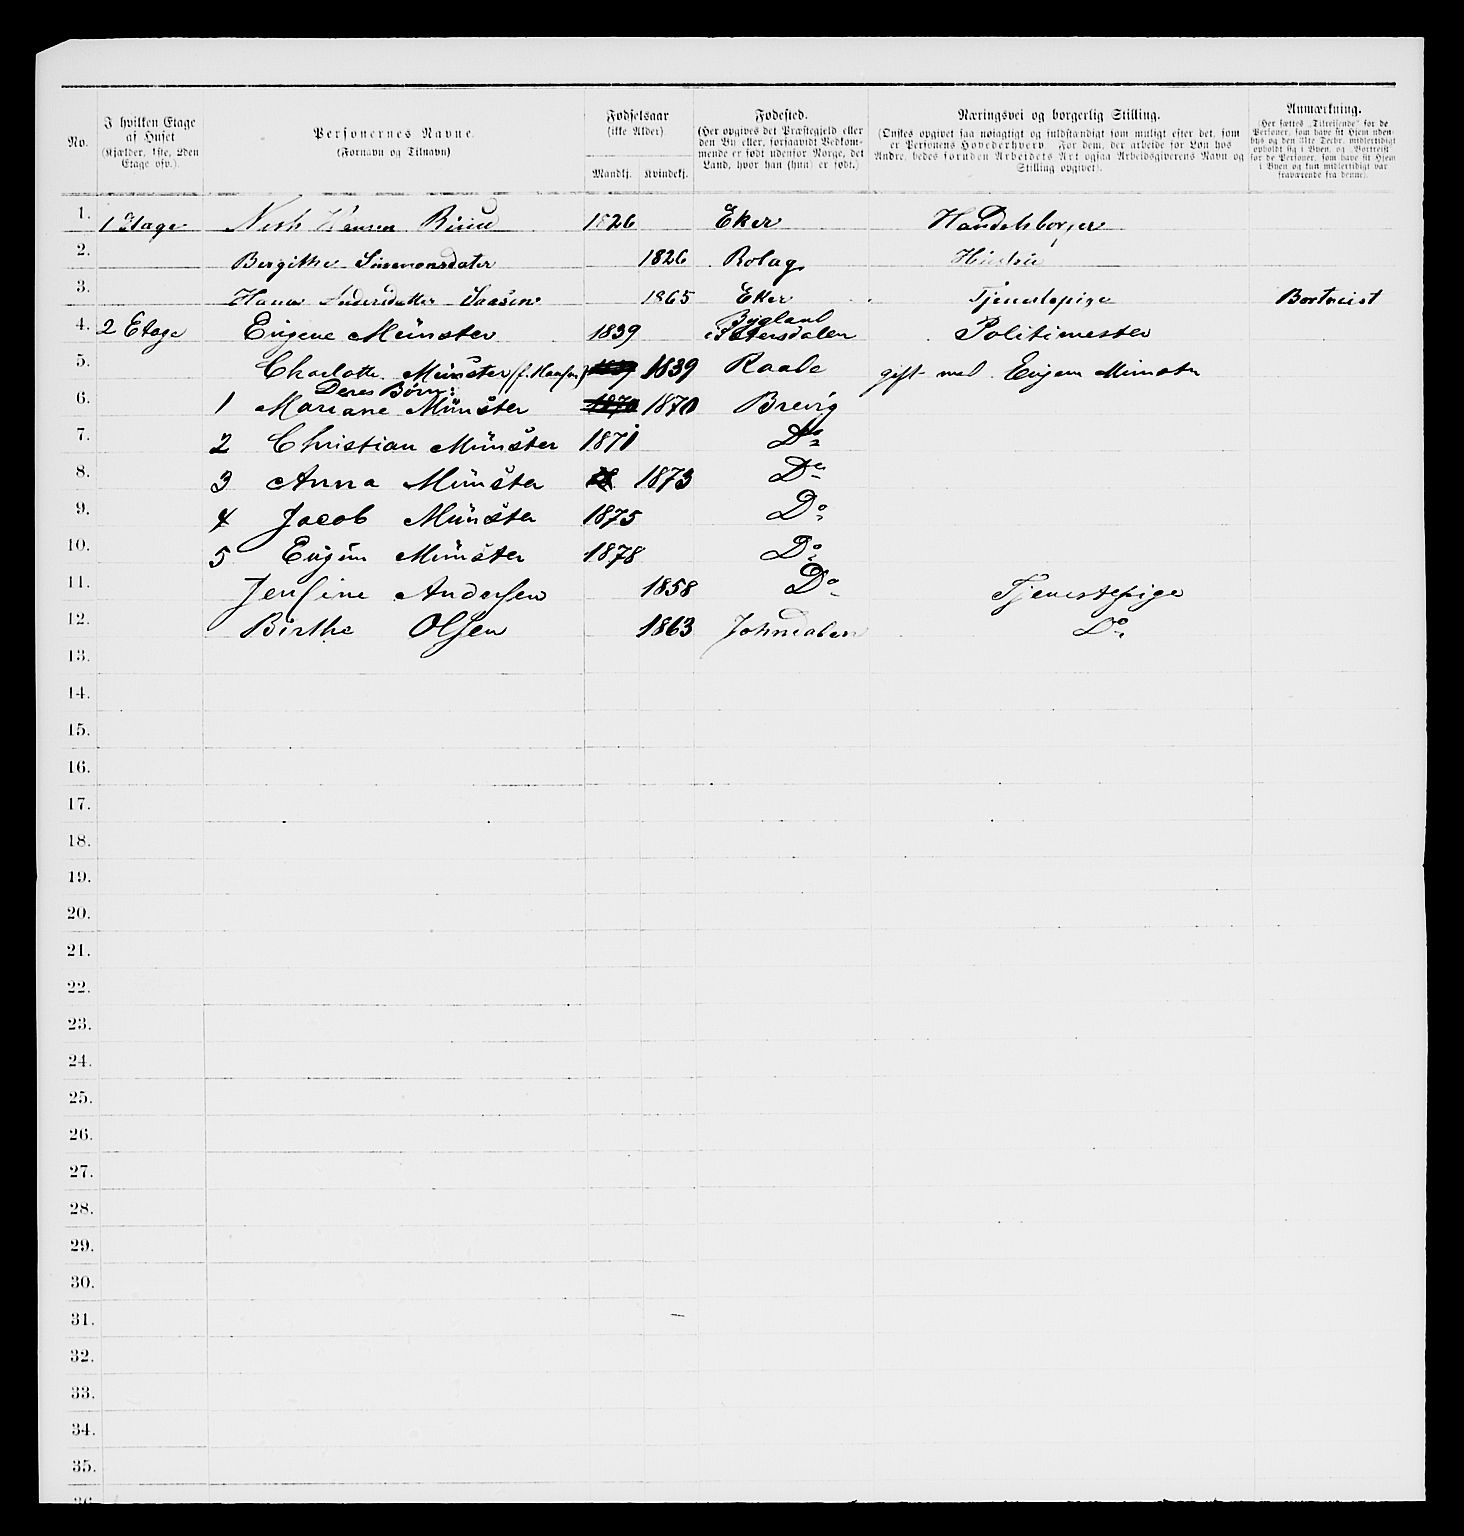 No.
I hvilken Etage af Huset (Kjælder, 1ste, 2den Etage osv.).
Personernes Navne. (Fornavn og Tilnavn)
Fødselsaar (ikke Alder)
Mandkj. Kvindekj.
Fødested. (Her opgives det Præstegjeld eller den By eller, forsaavidt Vedkommende er født udenfor Norge, det Land, hvor han (hun) er født.)
Næringsvei og borgerlig Stilling. (Ønskes opgivet saa nøiagtigt og fuldstændigt som muligt efter det, som er Personens Hovederhverv. For dem, der arbeide for Løn hos Andre, bedes foruden Arbeidets Art ogsaa Arbeidsgiverens Navn og Stilling opgivet).
Anmærkning. (Her sættes „Tilreisende" for de Personer, som have sit Hjem udenbys og den 31te Decbr. midlertidigt opholdt sig i Byen, og „Bortreist" for de Personer, som have sit Hjem i Byen og kun midlertidigt var fraværende fra denne).
1. 1 Etage Hansen 1826 Eker Handelsborger
2. Bergithe Simmonsdater 1826 Rolag Hustru
3. Hana Andersdatter 1865 Eker Tjenestepige Bortreist
4. 2 Etage Eugene Münster 1839 Bygland i Sætersdalen Politimester
5. Charlotte Münster (f. Hansen) 1839 1839 Raade gift med Eugen Münster
Deres Børn:
6. 1 Mariane Münster 1870 1870 Brevig
7. 2 Christian Münster 1871 Do
8. 3 Anna Münster 18 1873 Do
9. 4 Jacob Münster 1875 Do
10. 5 Eugen Münster 1878 Do
11. Jensine Andersen 1858 Do Tjenestepige
12. Birthe Olsen 1863 Johndalen Do
13.
14.
15.
16.
17.
18.
19.
20.
21.
22.
23.
24.
25.
26.
27.
28.
29.
30.
31.
32.
33.
34.
35.